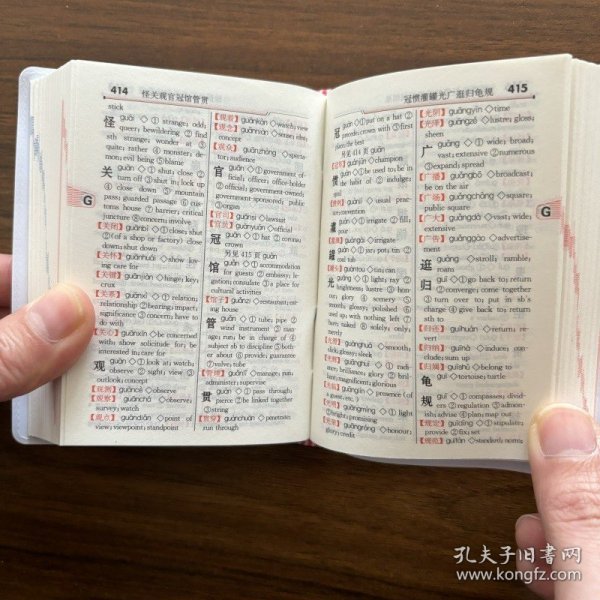 414 怪关观官冠馆管贯
stick
怪 guài ◇① strange; odd;
queer; bewildering ② find
sth strange; wonder at ③
quite; rather ④ monster; de-
mon; evil being ⑤ blame
关 guān ◇① shut; close ②
turn off ③ shut in; lock up
④ close down ⑤ mountain
pass; guarded passage ⑥ cus-
toms house ⑦ barrier; critical
juncture ⑧ concern; involve
【关闭】guānbì ◇① close; shut
② (of a shop or factory) close
down; shut down
【关怀】guānhuái ◇ show lov-
ing care for
【关键】guānjiàn ◇ hinge; key;
crux
【关系】guānxì ◇① relation;
relationship ② bearing; impact;
significance ③ concern; have
to do with
【关心】guānxīn ◇ be concerned
with; show solicitude for; be
interested in; care for
观 guān ◇① look at; watch;
observe ② sight; view ③
outlook; concept
【观测】guāncè ◇ observe
【观察】guānchá ◇ observe;
survey; watch
【观点】guāndiǎn ◇ point of
view; viewpoint; standpoint
【观看】guānkàn ◇ watch; view
【观念】guānniàn ◇ sense; idea;
concept
【观众】guānzhòng ◇ specta-
tor; audience
官 guān ◇① government of-
ficial; officer; office-holder
② official; government-owned;
government-sponsored; public
③ organ
【官司】guānsi ◇ lawsuit
【官员】guānyuán ◇ official
冠 guān ◇① hat ② corona;
crown
另见 415 页 guàn
馆 guǎn ◇① accommodation
for guests ② embassy; le-
gation; consulate ③ a place for
cultural activities
【馆子】guǎnzi ◇ restaurant; eat-
ing house
管 guǎn ◇① tube; pipe ②
wind instrument ③ man-
age; run; be in charge of ④
subject sb to discipline ⑤ both-
er about ⑥ provide; guarantee
⑦ valve; tube
【管理】guǎnlǐ ◇ manage; run;
administer; supervise
贯 guàn ◇① pass through;
pierce ② be linked together
③ string
【贯穿】guànchuān ◇ penetrate;
run through
G
冠惯灌罐光广逛归龟规 415
冠 guàn ◇① put on a hat ②
precede; crown with ③ first
place; the best
另见 414 页 guān
【冠军】guànjūn ◇ champion
惯 guàn ◇① be used to; be in
the habit of ② indulge;
spoil
guànlì ◇ usual prac-
tice; convention
灌 guàn ◇① irrigate ② fill;
pour
guàngài ◇ irrigate
罐 guàn ◇① jar ② tin
【罐头】guàntou ◇ tin; can
光 guāng ◇① light; ray ②
brightness; lustre ③ hon-
our; glory ④ scenery ⑤
smooth; glossy; polished ⑥
used up; with nothing left ⑦
bare; naked ⑧ solely; only;
merely
guānghuá ◇ smooth;
slick; glossy; sleek
guānghuī ◇① radi-
ance; brilliance; glory ② bril-
liant; magnificent; glorious
guānglín ◇ presence (of
a guest, etc.)
【光明】guāngmíng ◇① light
② bright; promising
【光荣】guāngróng ◇ honour;
glory; credit
【光阴】guāngyīn ◇ time
【光泽】guāngzé ◇ lustre; gloss;
sheen
广 guǎng ◇① wide; broad;
vast; extensive ② numerous
③ expand; spread
【广播】guǎngbō ◇ broadcast;
be on the air
【广场】guǎngchǎng ◇ square;
public square
【广大】guǎngdà ◇ vast; wide;
extensive
【广告】guǎnggào ◇ advertise-
ment
逛 guàng ◇ stroll; ramble;
roam
归 guī ◇① go back to; return
② converge; come together
③ turn over to; put in sb's
charge ④ give back to; return
sth to
【归还】guīhuán ◇ return; re-
vert
【归纳】guīnà ◇ induce; con-
clude; sum up
【归属】guīshǔ ◇ belong to
龟 guī ◇ tortoise; turtle
规 guī ◇① compasses; divid-
ers ② regulation ③ admon-
ish; advise ④ plan; map out
【规定】guīdìng ◇① stipulate;
provide ② fix; set
【规范】guīfàn ◇ standard; norm;
G
孔夫子旧书网
www.kongfz.com